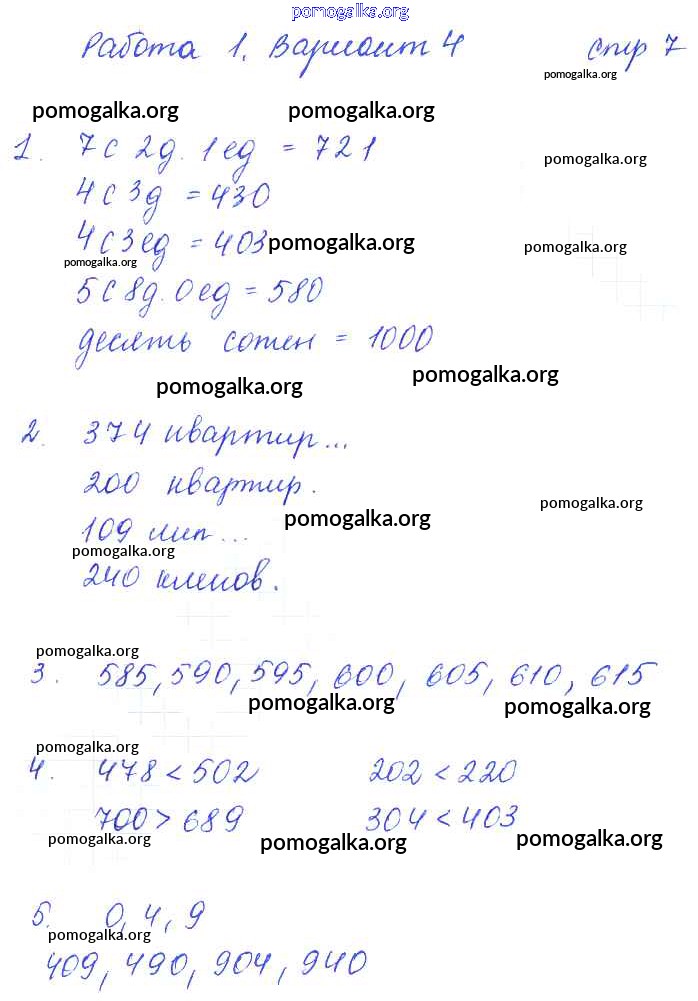 pomogalka.org
Работа 1. Вариант 4 стр 7
pomogalka.org
pomogalka.org pomogalka.org
1. 7с 2д. 1ед = 721
pomogalka.org
4с 3д = 430
4с 3ед = 403 pomogalka.org pomogalka.org
pomogalka.org
5с 8д. 0ед = 580
десять сотен = 1000
pomogalka.org pomogalka.org
2. 374 квартир...
200 квартир.
pomogalka.org
109 лип... pomogalka.org
pomogalka.org
240 кленов.
pomogalka.org
3. 585, 590, 595, 600, 605, 610, 615
pomogalka.org pomogalka.org
pomogalka.org
4. 478 < 502 202 < 220
700 > 689 304 < 403
pomogalka.org pomogalka.org pomogalka.org
5. 0, 4, 9
pomogalka.org
409, 490, 904, 940